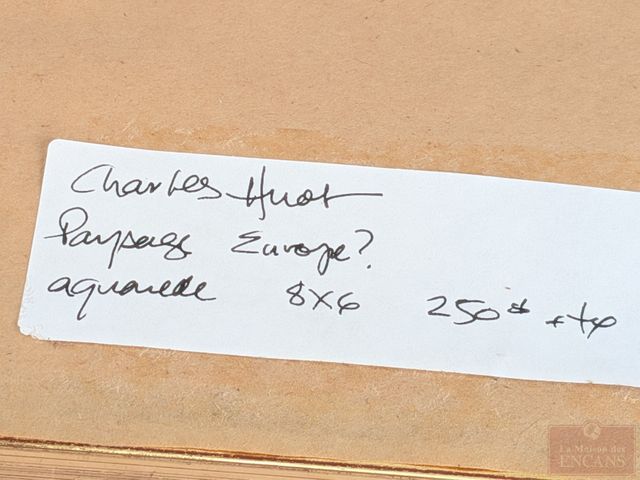 Charles Huot
Paysage Europe?
aquarelle 8x6 250$
La Maison des
ENCANS